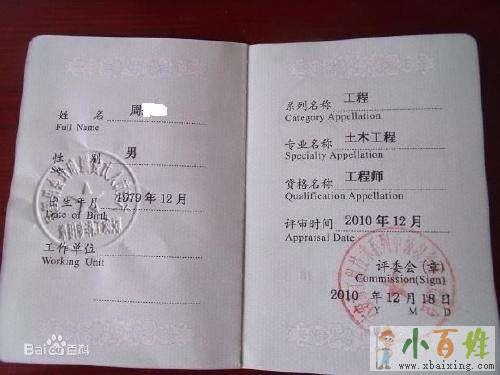 姓 名 周
Full Name
性 别 男
Sex
出生年月 1979年12月
Date of Birth
工作单位
Working Unit
系列名称 工程
Category Appellation
专业名称 土木工程
Specialty Appellation
资格名称 工程师
Qualification Appellation
评审时间 2010年12月
Appraisal Date
评委会(章)
Commission(Sign)
2010 年 12 月 18 日
Y M D
Baidu百科
小百姓
www.xbaixing.com